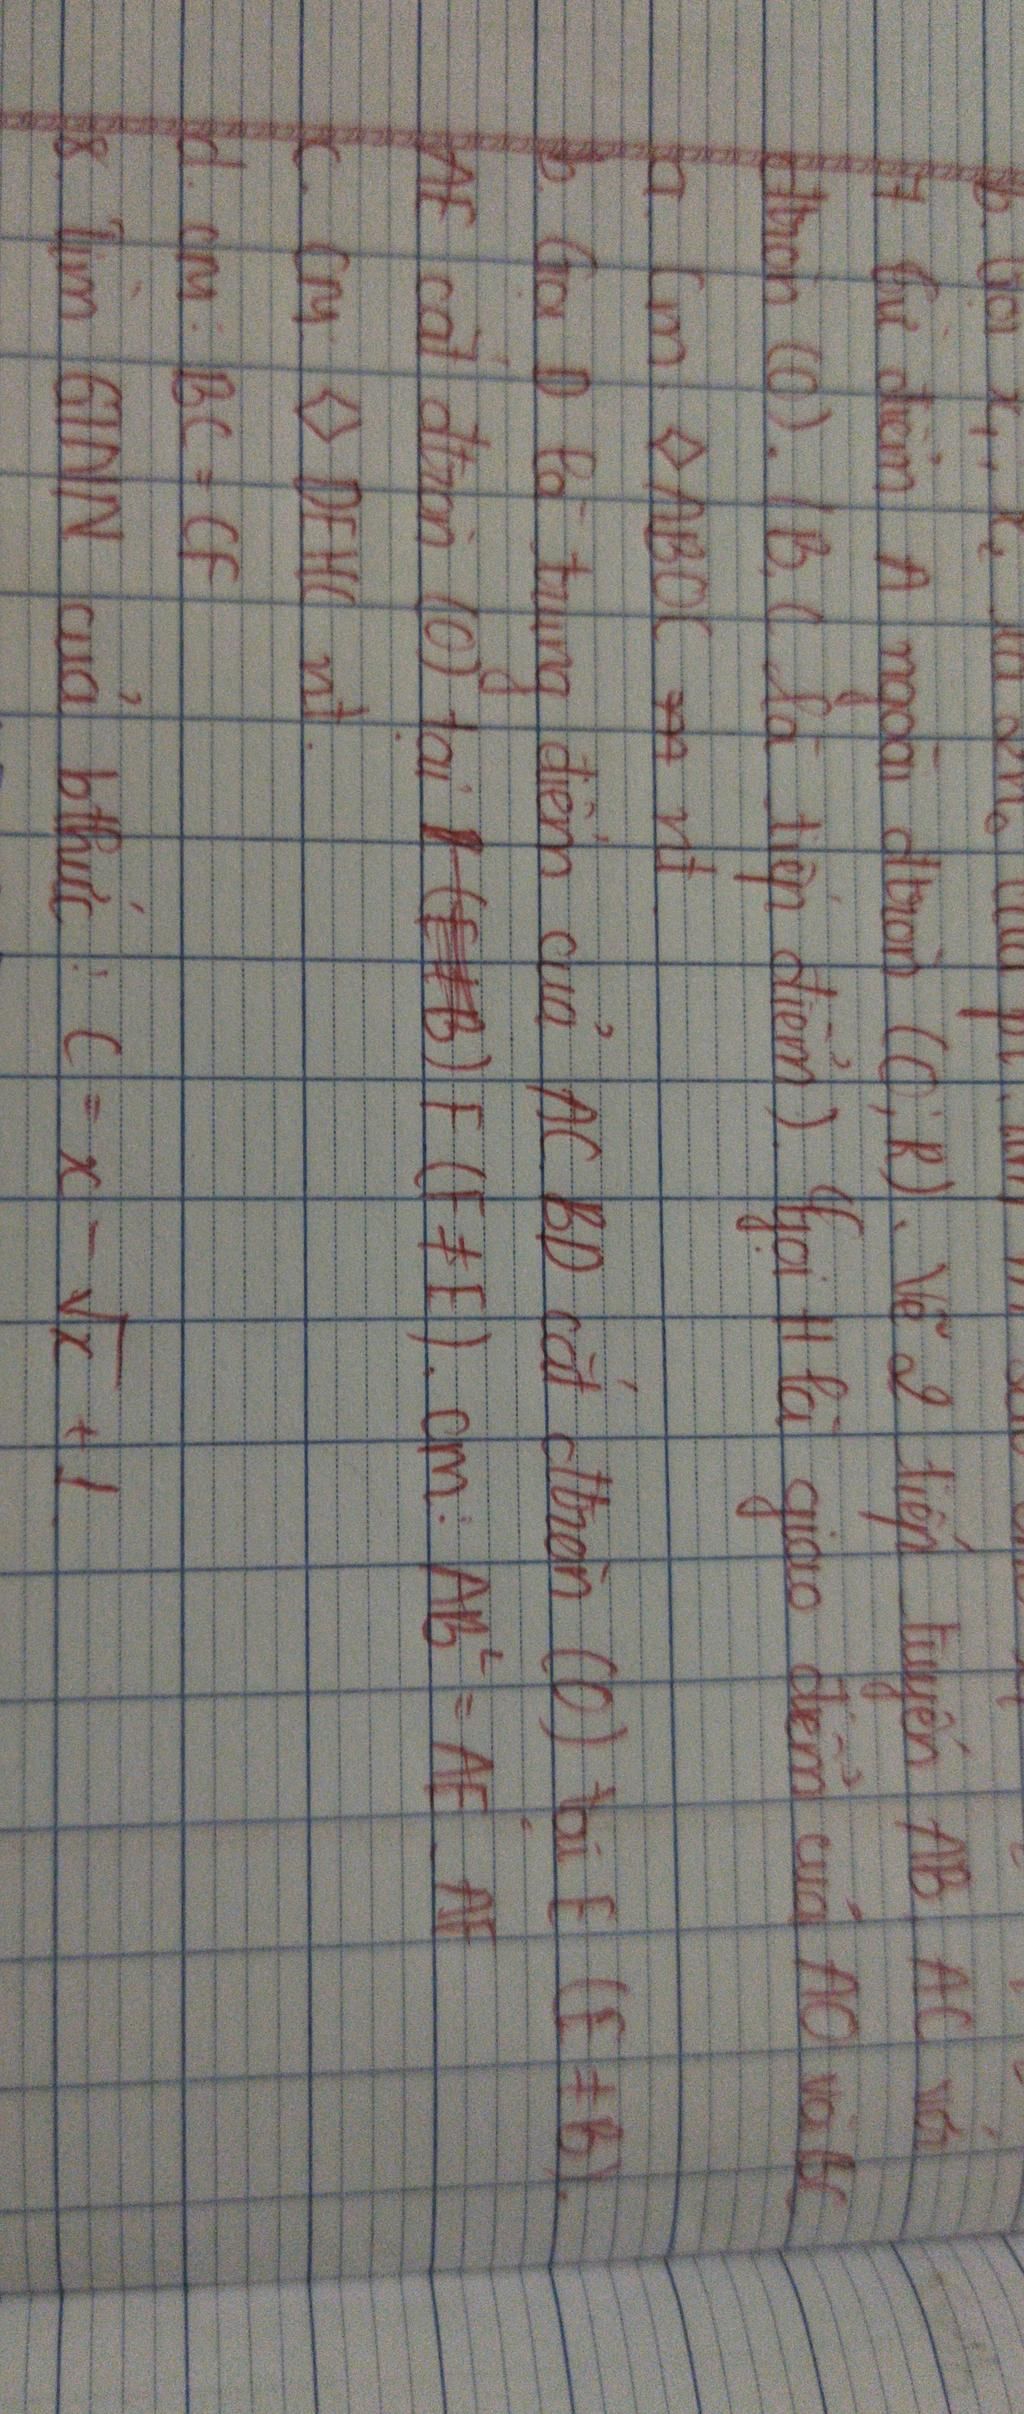 b. Gọi x₁, x₂ là
7 Từ điểm A ngoài đtròn (O; R). Vẽ 2 tiếp tuyến AB, AC với
đtròn (O). (B, C là tiếp điểm) Gọi H là giao điểm của AO và BC
a. Cm: ◇ABOC nt
b. Gọi D là trung điểm của AC BD cắt đtròn (O) tại E (E ≠ B).
AE cắt đtròn (O) tại F (F ≠ E). cm: AB² = AE. AF
c. Cm: ◇ DEHC nt.
d. cm: BC = CF
8. Tìm GTNN của bthức: C = x - √x + 1